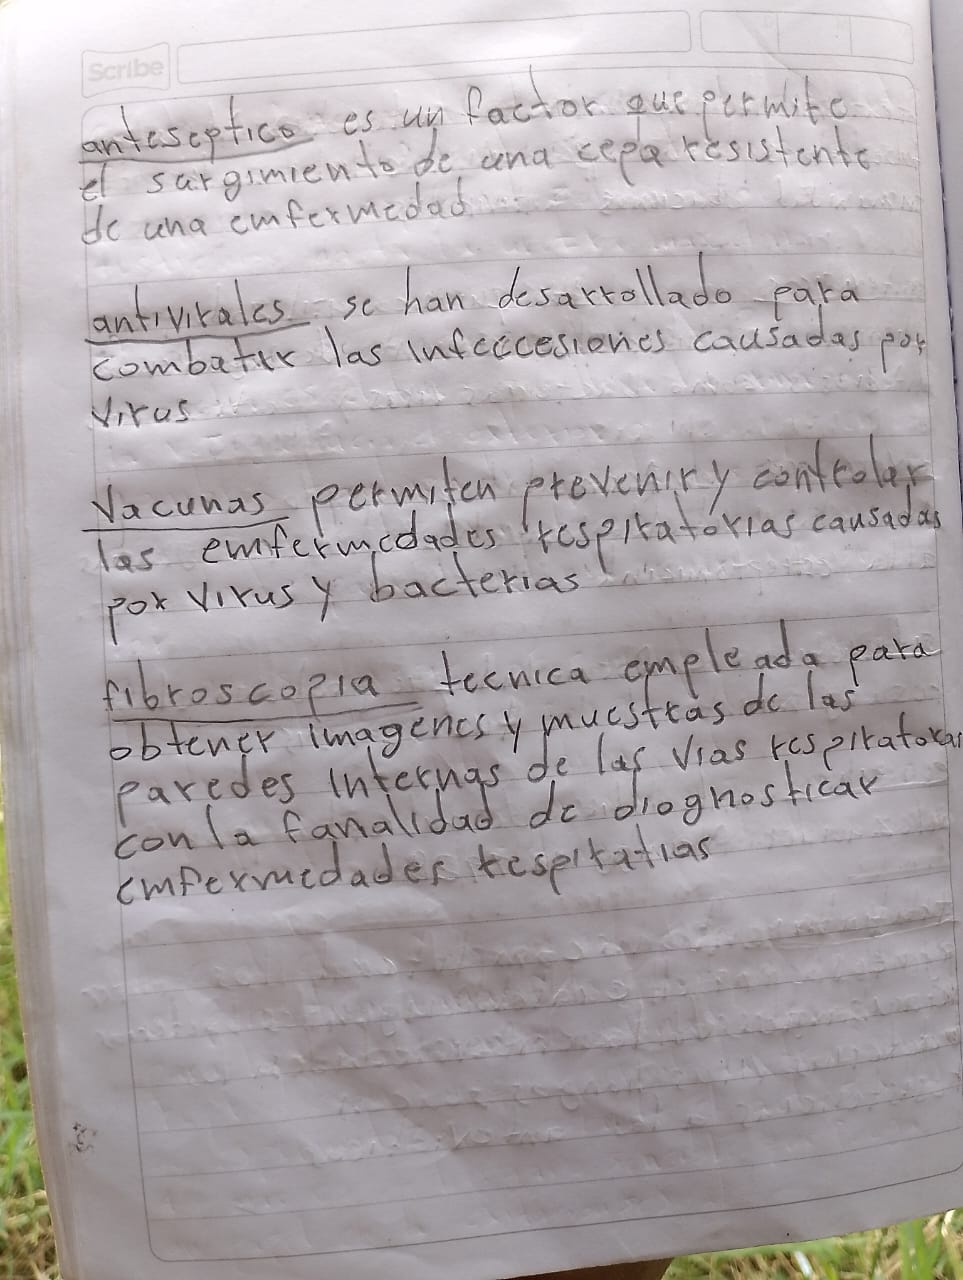 Scribe
anteseptico es un factor que permite
el surgimiento de una cepa resistente
de una emfermedad
antivirales se han desarrollado para
combatir las infecccesiones causadas por
virus
Vacunas permiten prevenir y controlar
las emfermedades respiratorias causadas
por virus y bacterias
fibroscopia tecnica empleada para
obtener imagenes y muestras de las
paredes internas de las vias respiratoras
con la fanalidad de diognosticar
emfermedades respiratias